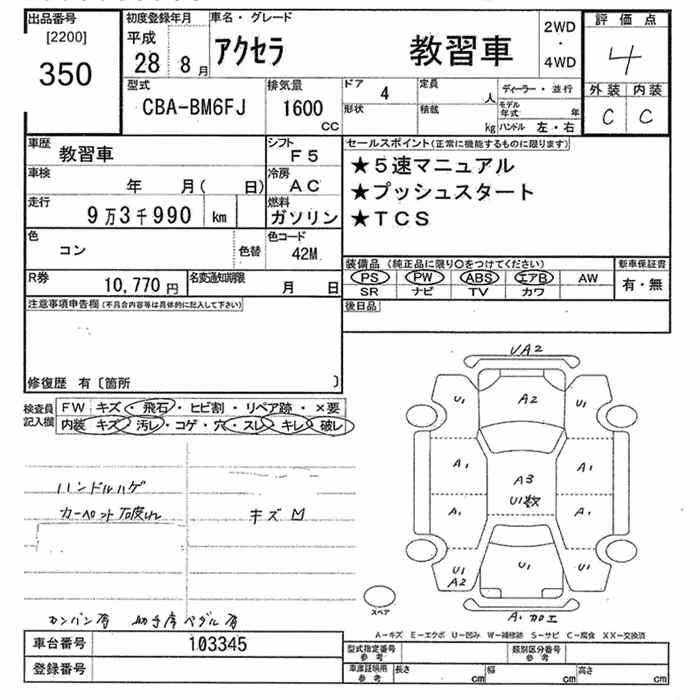 出品番号
[2200]
350
初度登録年月
平成
28 8月
車名・グレード
アクセラ 教習車
2WD
・
4WD
評価点
4
外装 内装
C C
型式
CBA-BM6FJ
排気量
1600
CC
ドア 4
形状
定員 人
積載 kg
ディーラー・並行
モデル年式 年
ハンドル 左・右
車歴
教習車
シフト
F5
車検
年 月( 日)
冷房
AC
走行
9万3千990 km
燃料
ガソリン
色
コン
色替
色コード
42M
R券
10,770円
名変通知期限
月 日
セールスポイント(正常に機能するものに限ります)
★5速マニュアル
★プッシュスタート
★TCS
装備品(純正品に限り○をつけてください)
PS PW ABS エアB AW
SR ナビ TV カワ
新車保証書
有・無
後日品
注意事項申告欄(不具合内容等は具体的に記入して下さい)
修復歴 有〔箇所 〕
検査員記入欄
FW キズ・飛石・ヒビ割・リペア跡・×要
内装 キズ・汚レ・コゲ・穴・スレ・キレ・破レ
ハンドルハゲ
カーペット破れ
キズ凹
カンバン有 助手席ペダル有
UA2
U1 A2 U1
A1 A3 A1
U1数
A1 A1
U1 U1 U1
A2
スペア
A1 加工
A-キズ E-エクボ U-凹み W-補修跡 S-サビ C-腐食 XX-交換済
車台番号 103345
登録番号
型式指定番号 参考
類別区分番号 参考
車庫証明用 参考
長さ cm 幅 cm 高さ cm